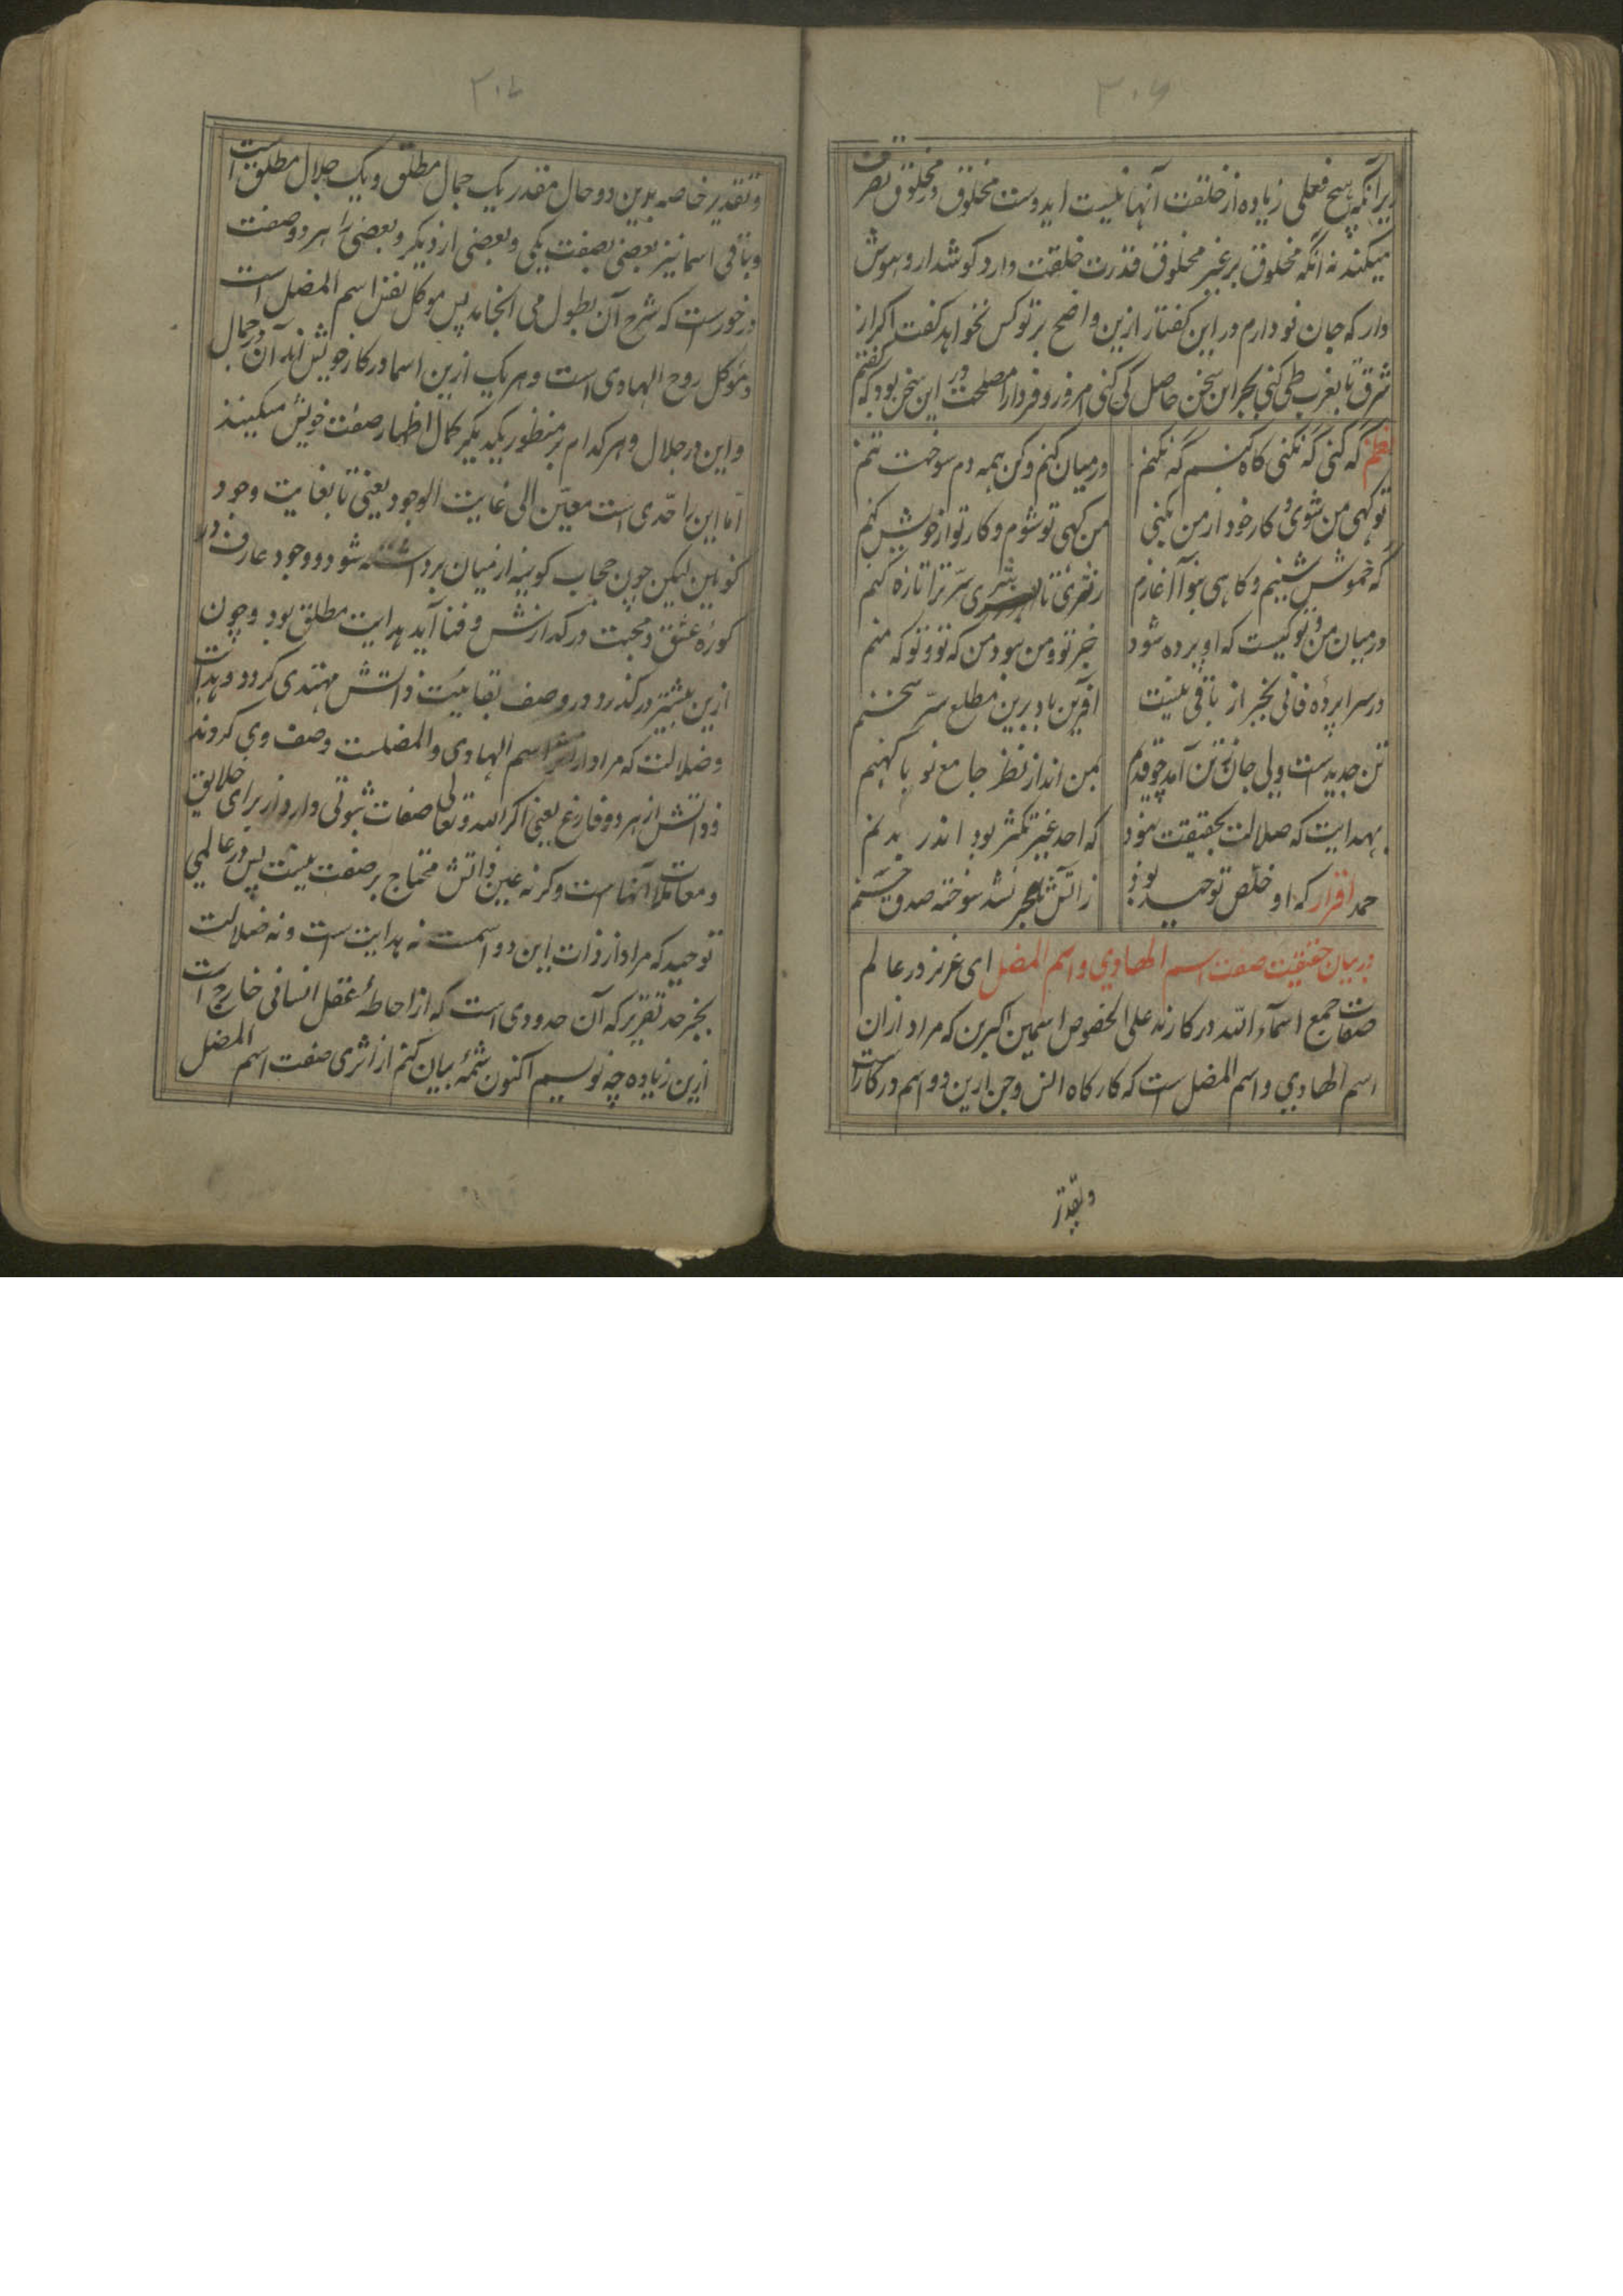 ۳۰۶
زیرا که هیچ فعلی زیاده از خلقت آنها نیست ایدوست مخلوق در مخلوق تصرف
میکند نه آنکه مخلوق بر غیر مخلوق قدرت خلقت دارد کوشدار و هوش
دار که جان نو دارم در این کفتار ازین واضح بر تو کس نخواهد کفت اکر از
شرق تا بغرب طی کنی بجز این سخن حاصل کی کنی امروز و فردا را مصلحت در این سخن بود که کفتم
نظم که کنی که نکنی کاه کنم که نکنم در میان کنم و کن همه دم سوخت تنم
تو کهی من شوی و کار خود از من بکنی من کهی تو شوم و کار تو از خویش کنم
که خموش نشینم و کاهی بنو آغازم بشری سر ترا تازه کنم
در میان من و تو کیست که او پرده شود جز تو و من نبود من که تو و تو که منم
در سراپرده فانی بجز از باقی نیست آفرین باد برین مطلع سر سخنم
تن جدیدست ولی جان تن آمد چو قدیم بمن انداز نظر جامع نو با کهنم
بهدایت که ضلالت بحقیقت نبود که احد غیر تکثر بود اندر بدنم
حمد اقرار که او خلص توحید بود ز آتش نشد سوخته صدق
در بیان حقیقت صفت اسم الهادی و اسم المضل ای عزیز در عالم
صفات جمیع اسماء الله در کارند علی الخصوص اسمین اکبرین که مراد از آن
اسم الهادی و اسم المضل است که کارکاه انس و جن ازین دو اسم در کار است
و تقدیر
۳۰۷
و تقدیر خاصه بدین دو حال مقدر یک جمال مطلق و یک جلال مطلق است
و باقی اسما نیز بعضی بصفت یکی و بعضی از دیکر و بعضی را هر دو صفت
در خورست که شرح آن بطول می انجامد پس موکل نفس اسم المضل است
و موکل روح الهادی است و هر یک ازین اسما در کار خویش اند آن در جمال
و این در جلال و هر کدام بر منظور یکدیکر کمال اظهار صفت خویش میکنند
اما این را حدی است معین الی غایت الوجود یعنی تا بغایت وجود
کونین لیکن چون حجاب کونیه از میان برداشته شود و وجود عارف در
کوره عشق و محبت در کدازش و فنا آید هدایت مطلق بود و چون
ازین بیشتر در کذرد در وصف بقائیت ذاتش مهتدی کردد و هدایت
و ضلالت که مراد از اسم الهادی و المضلست وصف وی کردند
و ذاتش از هر دو فارغ یعنی اکر الله تعالی صفات ثبوتی دارد از برای خلایق
و معاملات آنها است و کرنه عین ذاتش محتاج بر صفت نیست پس در عالمی
توحید که مراد از ذات این دو اسمست نه هدایت است و نه ضلالت
بجز حد تقریر که آن حدودی است که از احاطهٔ عقل انسانی خارج است
ازین زیاده چه نویسم اکنون شمهٔ بیان کنم از اثری صفت اسم المضل